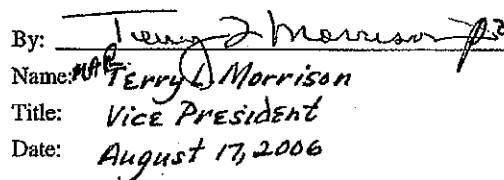 By: Terry L Morrison
Name: Terry L. Morrison
Title: Vice President
Date: August 17, 2006